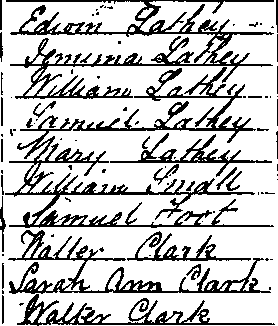 Edwin Lathey
Jemima Lathey
William Lathey
Samuel Lathey
Mary Lathey
William Small
Samuel Foot
Walter Clark
Sarah Ann Clark
Walter Clark